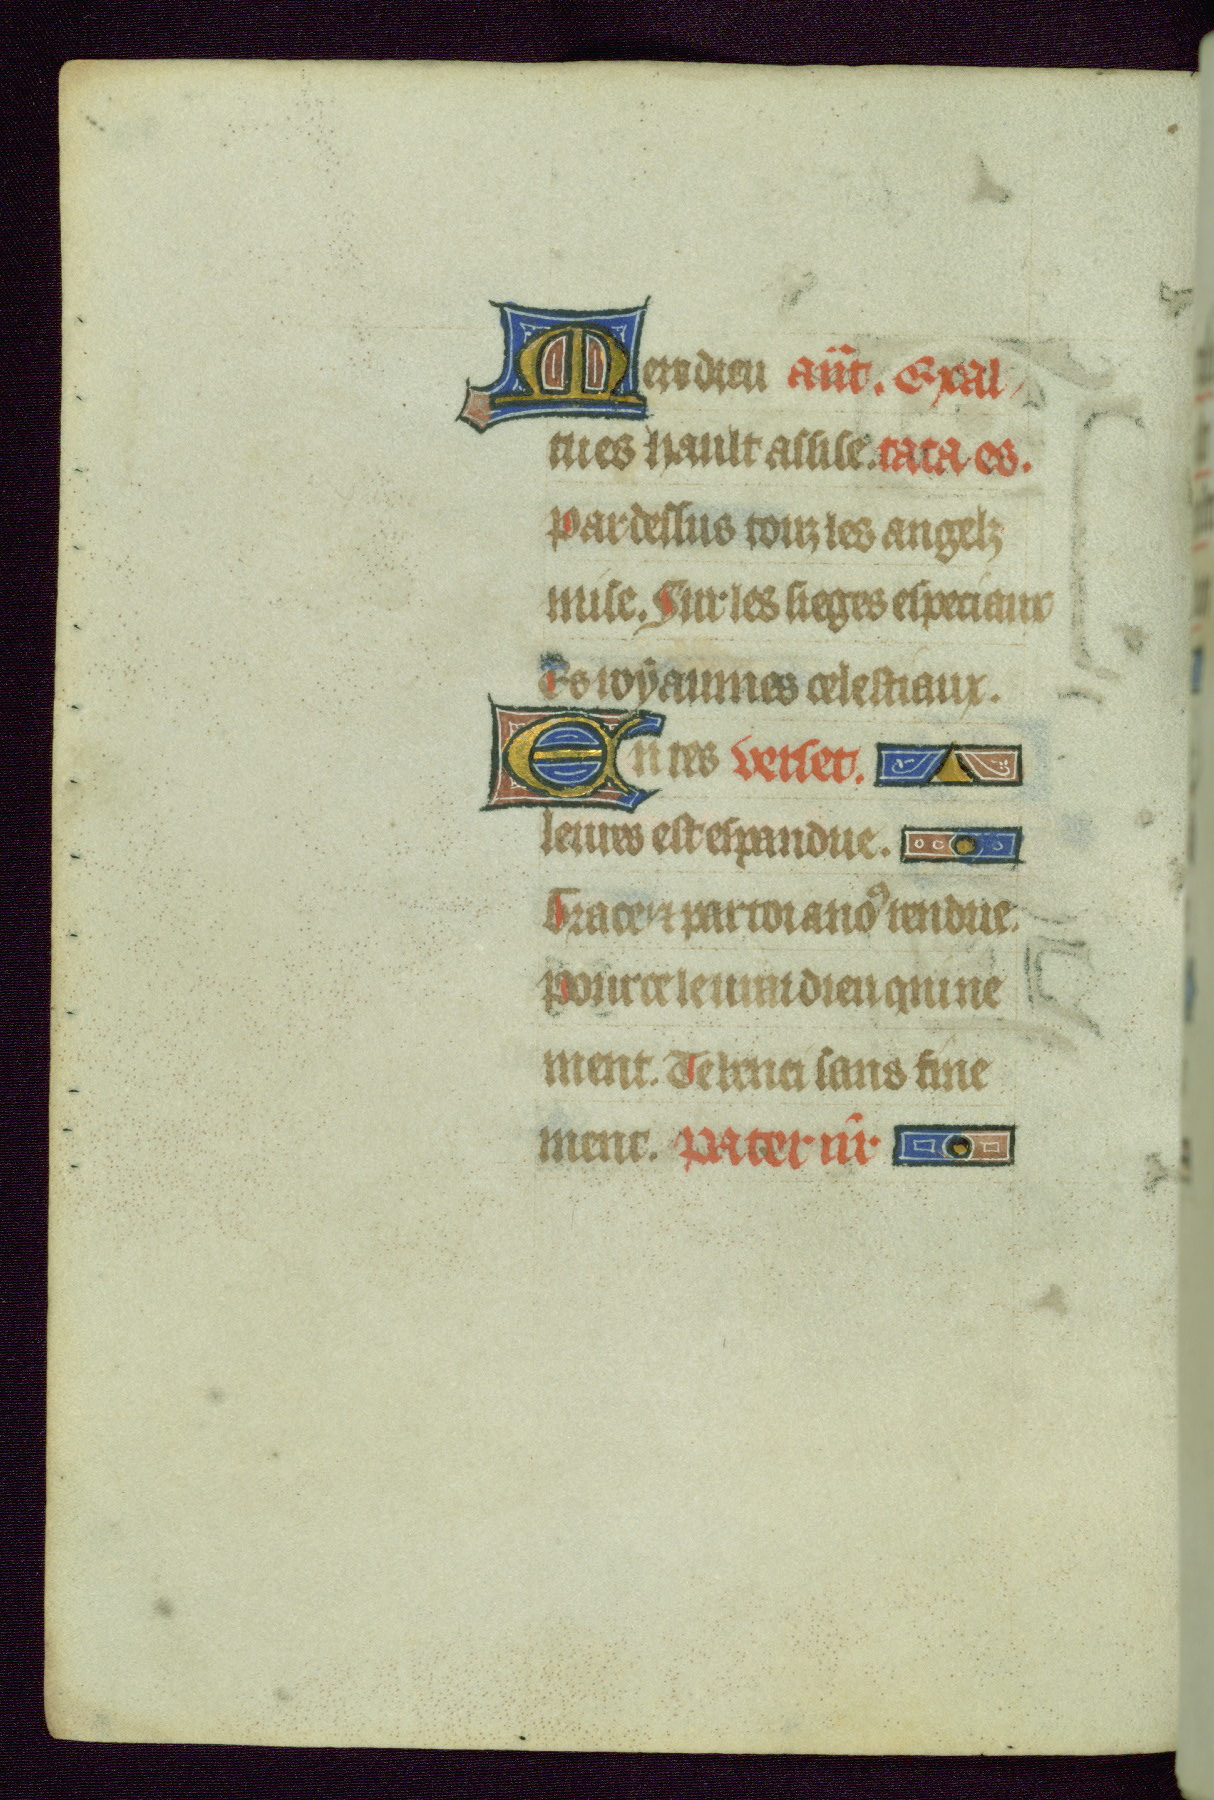 Mere dieu añt. Exal
tu es hault assise. tata es.
Par dessus touz les angelz
mise. Sur les sieges especiaux
Es royaumes celestiaux.
En tes verset.
leures est espandue.
Grace ⁊ par toi a noꝰ rendue.
Pour ce le vrai dieu qui ne
ment. Te benei sans fine
ment. Pater nr̃